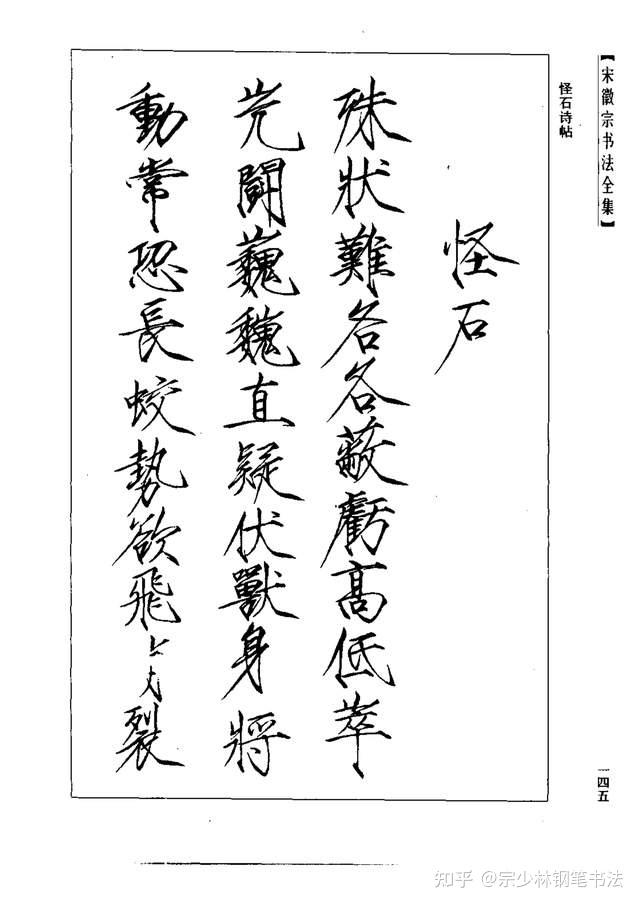 【宋徽宗书法全集】
怪石诗帖
怪石
殊狀難各各蔽虧高低崒
屼鬪巍巍直疑伏獸身將
動常恐長蛟勢欲飛裂
一四五
知乎 @宗少林钢笔书法